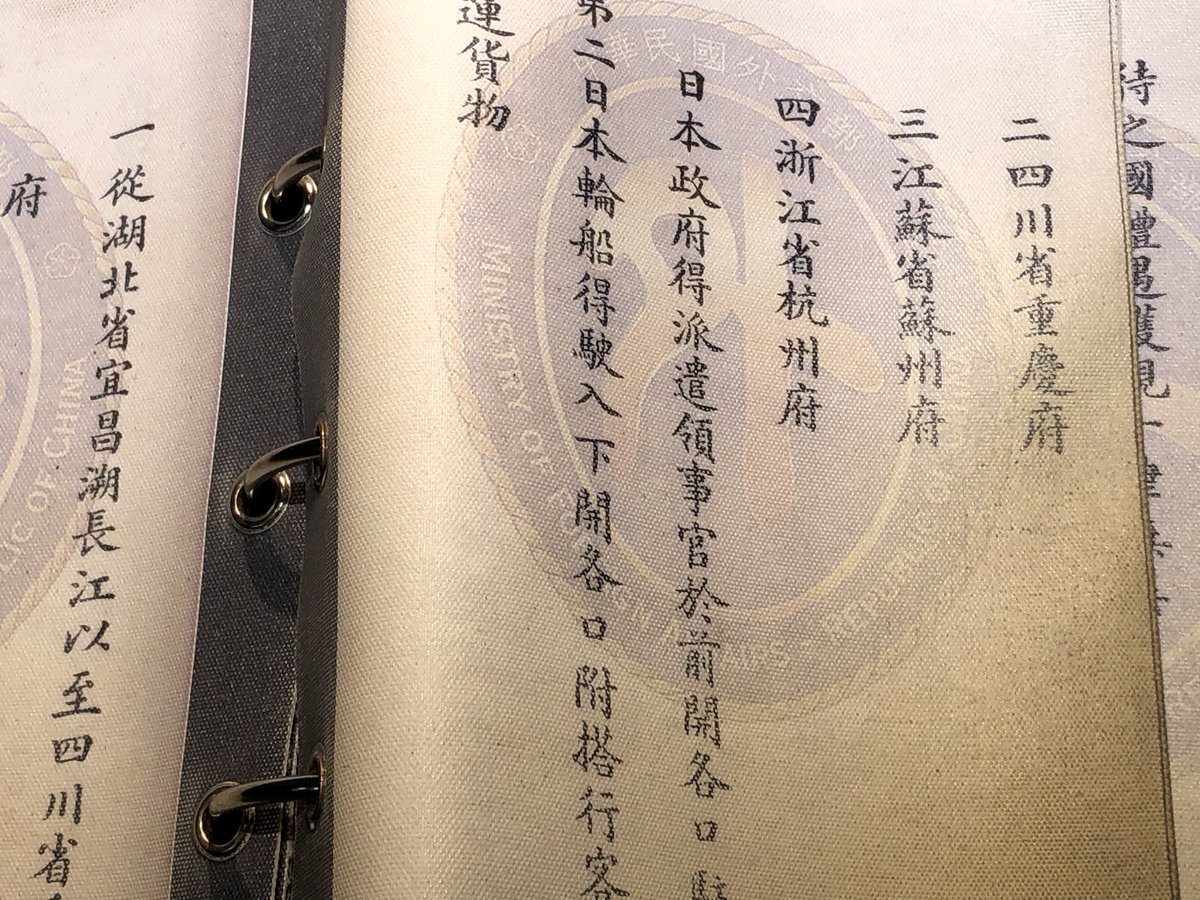 待之國禮遇護視一律無
二四川省重慶府
三江蘇省蘇州府
四浙江省杭州府
日本政府得派遣領事官於前開各口駐
第二日本輪船得駛入下開各口附搭行客
運貨物
一從湖北省宜昌溯長江以至四川省
府
華民國外交部
MINISTRY OF FOREIGN AFFAIRS REPUBLIC OF CHINA
LIC OF CHINA